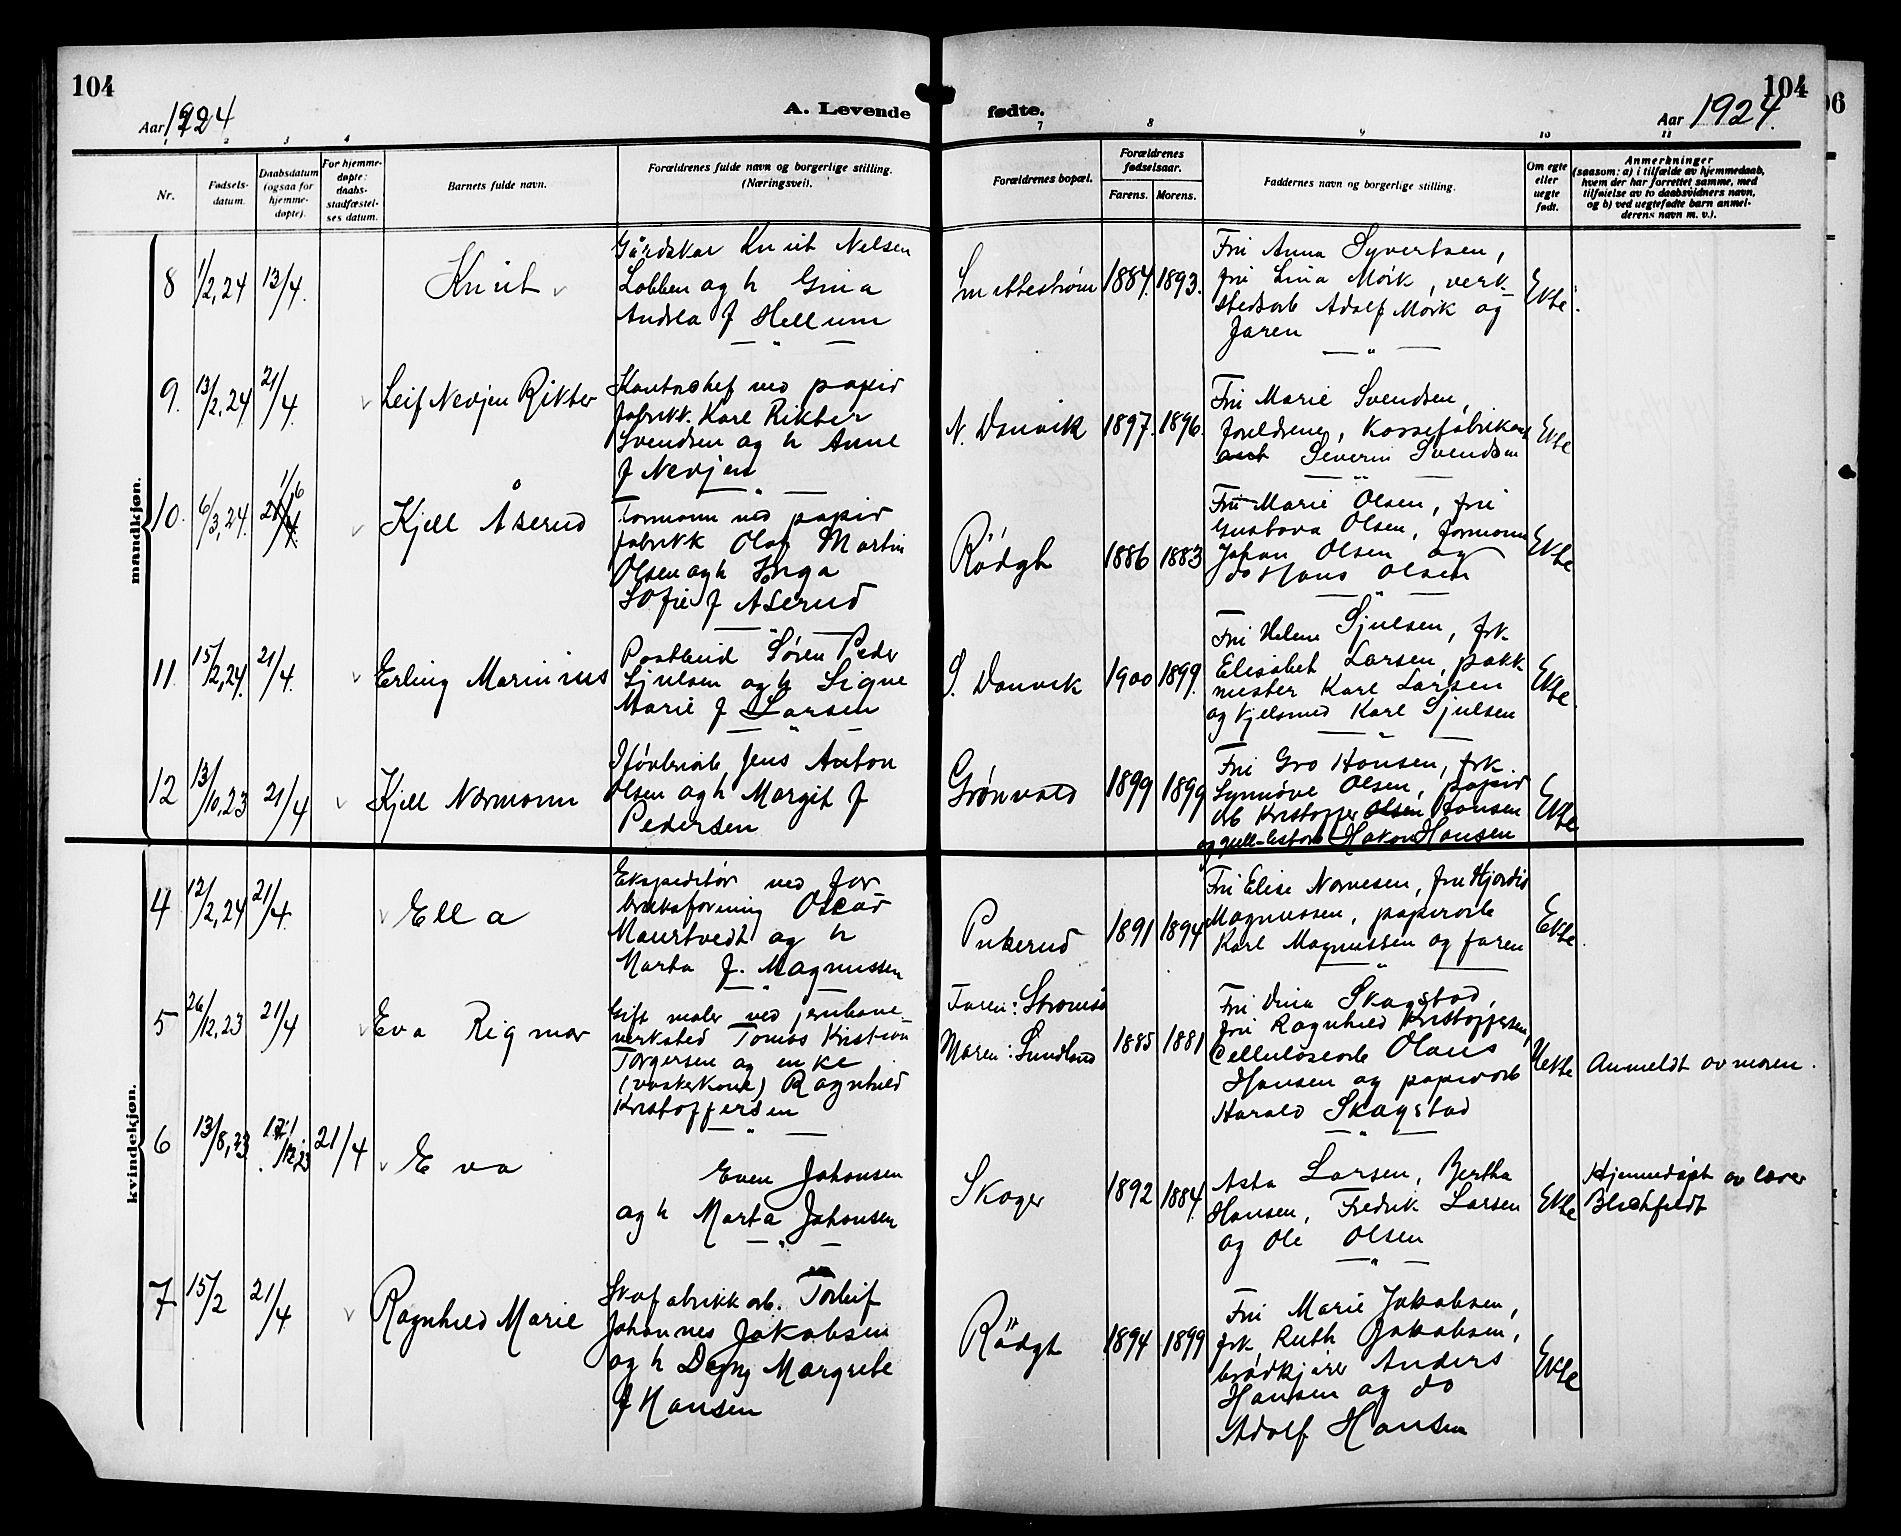 104
Aar 1924
A. Levende
fødte.
104
Aar 1924.
06
1 2 3 4 7 8 9 10 11
Nr.
Fødsels-
datum.
Daabsdatum
(ogsaa for
hjemme-
døpte).
For hjemme-
døpte:
daabs-
stadfæstel-
ses datum.
Barnets fulde navn.
Forældrenes fulde navn og borgerlige stilling.
(Næringsvei).
Forældrenes bopæl.
Forældrenes
fødselsaar.
Farens. Morens.
Faddernes navn og borgerlige stilling.
Om egte
eller
uegte
født.
Anmerkninger
(saasom: a) i tilfælde av hjemmedaab,
hvem der har forrettet samme, med
tilføielse av to daabsvidners navn,
og b) ved uegtefødte barn anmel-
derens navn m. v.).
mandkjøn.
8
1/2,24
13/4.
Knut
Gårdskar Knut Nelsen
Lobben og h Gina
Andrea f Hellum
Smettestrøm
1884. 1893.
Fru Anna Syvertsen,
fru Lina Mørk, verk
stedsarb Adolf Mørk og
faren
Ekte.
9.
13/2,24.
21/4.
Leif Nevjen Rikter
Kontorchef ved papir
fabrikk. Karl Rikter
Svendsen og h Anne
f Nevjen
N. Danvik
1897. 1896.
Fru Marie Svendsen,
foreldrene,
Severin Svendsen
Ekte
10.
6/3,24.
1/6
21/4.
Kjell Åserud
Formann ved papir
fabrikk Olaf Martin
Olsen og h Inga
Sofie f Åserud
Rødgt
1886 1883
Fru Marie Olsen, fru
Gustava Olsen, formann
Johan Olsen og
do Hans Olsen
Ekte
11.
15/2,24.
21/4.
Erling Marinius
Postbud Søren Peder
Sjulsen og h Signe
Marie f Larsen
S. Danvik
1900 1899.
Fru Helene Sjulsen, frk.
Elisabet Larsen, pakk
mester Karl Larsen
og kjelsmed Karl Sjulsen
Ekte
12
13/10,23
21/4
Kjell Normann
Jens Anton
Olsen og h Margit f
Pedersen
Grønvold
1899 1899
Fru Gro Hansen, frk.
Synnøve Olsen, papir
arb Kristoffer Olsen Hansen
og Håkon Hansen
Ekte
kvindekjøn.
4
12/2,24
21/4.
Ella
Ekspeditør ved for
bruksforening Oscar
Maurtvedt og h
Marta f. Magnussen
Pukerud
1891 1894
Fru Elise Narvesen, fru Hjordis
Magnussen, papirarb
Karl Magnussen og faren
Ekte
5
26/12,23
21/4
Eva Rigmor
Gift maler ved jernbane-
verksted Tomas Kristian
Torgersen og enke
(vaskekone) Ragnhild
Kristoffersen
Faren: Strømsø
Moren: Sundland
1885 1881
Fru Dina Skagstad,
fru Ragnhild Kristoffersen,
Cellulosearb Olaus
Hansen og papirarb
Harald Skagstad
Uekte
Anmeldt av moren.
6
13/8,23
21/4
Eva
Even Johansen
og h Marta Johansen
Skoger
1892 1884.
Asta Larsen, Bertha
Hansen, Fredrik Larsen
og Ole Olsen
Ekte
Hjemmedøpt av lærer
Blichfeldt
7
15/2
21/4
Ragnhild Marie
Skofabrikkarb. Torleif
Johannes Jakobsen
og h Dagny Margrete
f Hansen
Rødgt
1894 1899
Fru Marie Jakobsen,
frk. Ruth Jakobsen,
brødkjører Anders
Hansen og do
Adolf Hansen
Ekte